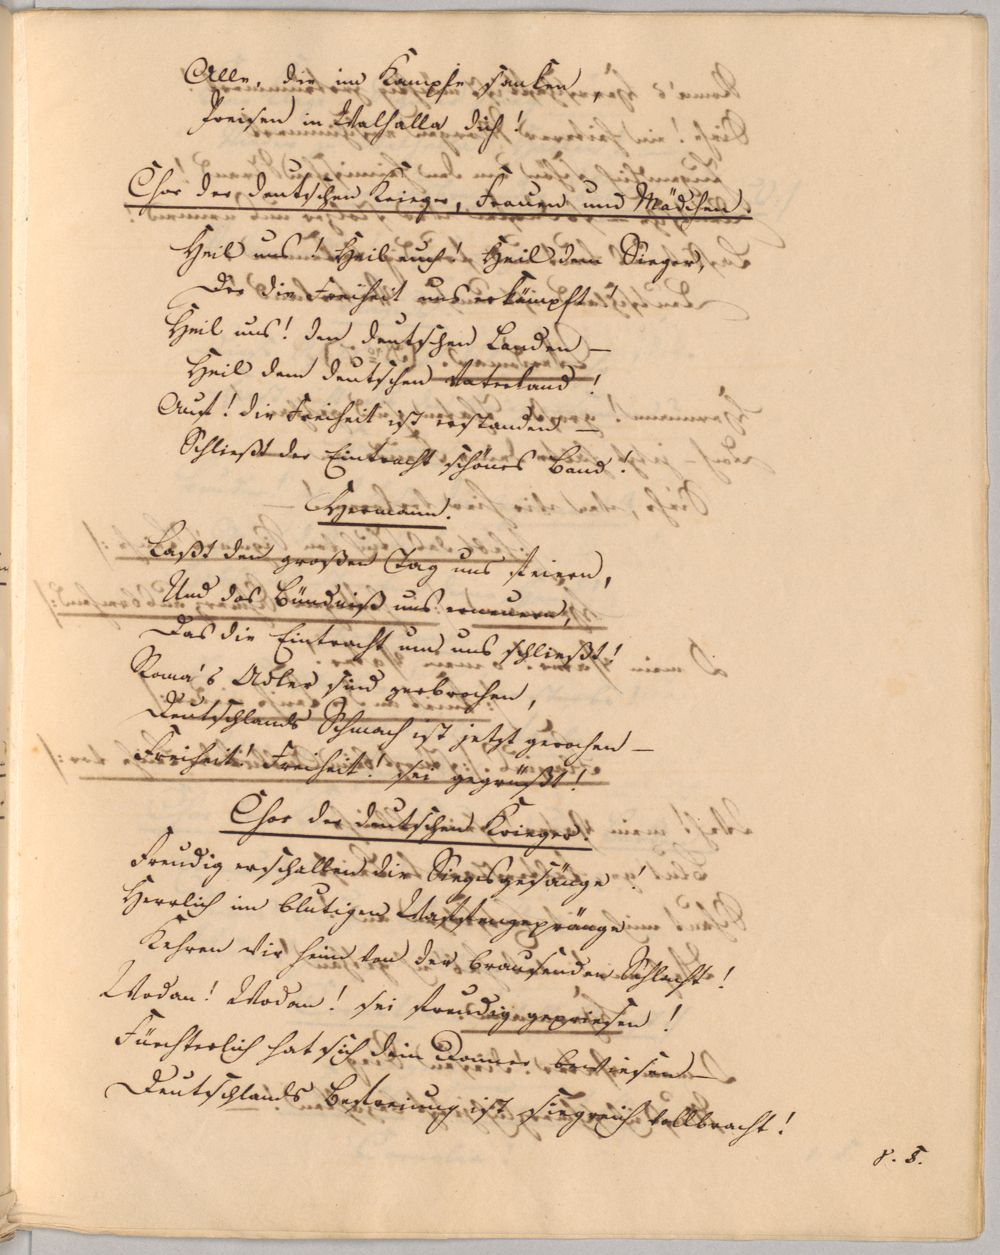 Alle, die im Kampfe sanken,
Preisen in Walhalla dich!
Chor der deutschen Krieger, Frauen und Mädchen.
Heil uns! Heil euch! Heil dem Sieger,
Der die Freiheit uns erkämpft!
Heil uns! den deutschen Landen —
Heil dem deutschen Vaterland!
Auf! die Freiheit ist erstanden —
Schließt der Eintracht schönes Band!
Hermann.
Laßt den großen Tag uns feiern,
Und das Bündniß uns erneuern,
Das die Eintracht um uns schließt!
Roma's Adler sind zerbrochen,
Deutschlands Schmach ist jetzt gerochen —
Freiheit! Freiheit! sei gegrüßt!
Chor der deutschen Krieger.
Freudig erschallen die Siegesgesänge!
Herrlich im blutigen Waffengepränge
Kehren wir heim von der brausenden Schlacht!
Wodan! Wodan! sei freudig gepriesen!
Fürchterlich hat sich dein Donner bewiesen —
Deutschlands Befreiung ist siegreich vollbracht!